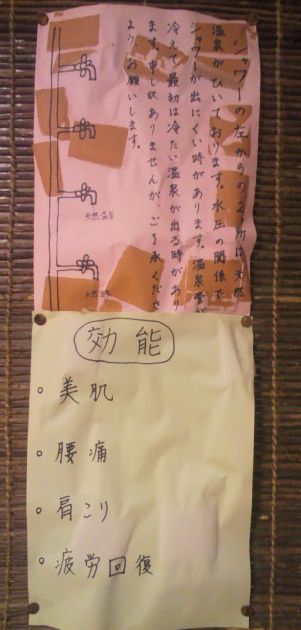 シャワーの左からの2ヶ所は天然
温泉がひいております。水圧の関係で
シャワーが出にくい時があります。温泉管が
冷えて最初は冷たい温泉が出る時があり
ます。申し訳ありませんが、ご了承くださ
ようお願いします。
天然温泉
天然温泉
効能
○ 美肌
○ 腰痛
○ 肩こり
○ 疲労回復